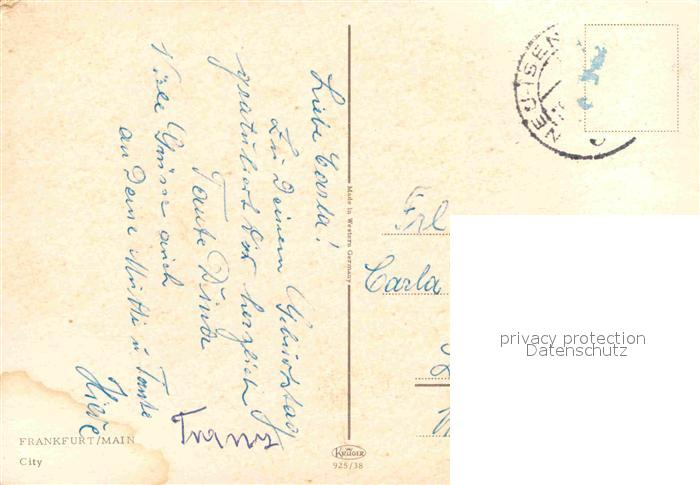 Liebe Carla!
Zu Deinem Geburtstag
gratuliert Dir herzlich
Tante Dinde
Viele Grüsse auch
an Deine Mutti u. Tante
Franz
FRANKFURT/MAIN
City
Made in Western Germany
KRÜGER
925/38
NEU-ISEN
Frl
Carla
privacy protection
Datenschutz